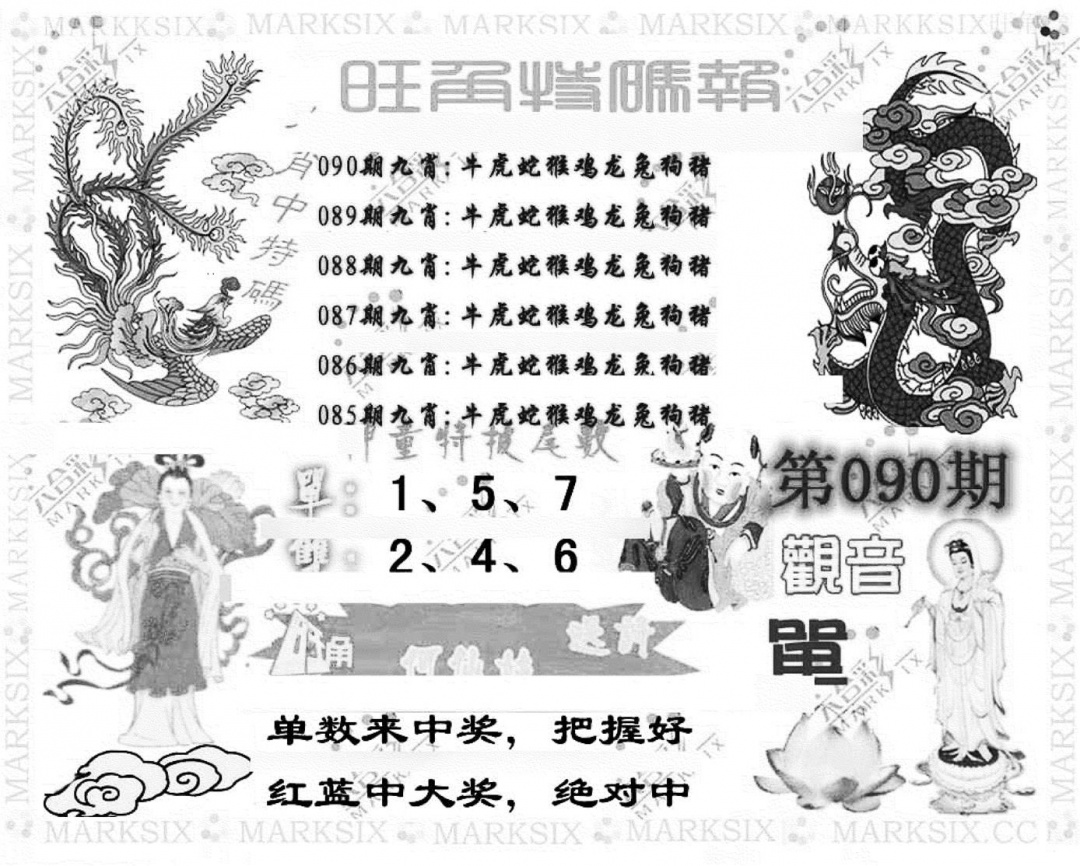 MARKSIX MARKSIX MARKSIX MARKSIX MARKKSIX
旺角特碼報
肖中特碼
090期九肖：牛虎蛇猴鸡龙兔狗猪
089期九肖：牛虎蛇猴鸡龙兔狗猪
088期九肖：牛虎蛇猴鸡龙兔狗猪
087期九肖：牛虎蛇猴鸡龙兔狗猪
086期九肖：牛虎蛇猴鸡龙兔狗猪
085期九肖：牛虎蛇猴鸡龙兔狗猪
童特报尾數
單：1、5、7
雙：2、4、6
第090期
觀音
單
何仙姑 送
单数来中奖，把握好
红蓝中大奖，绝对中
MARKSIX MARKSIX MARKSIX MARKSIX MARKSIX.CC